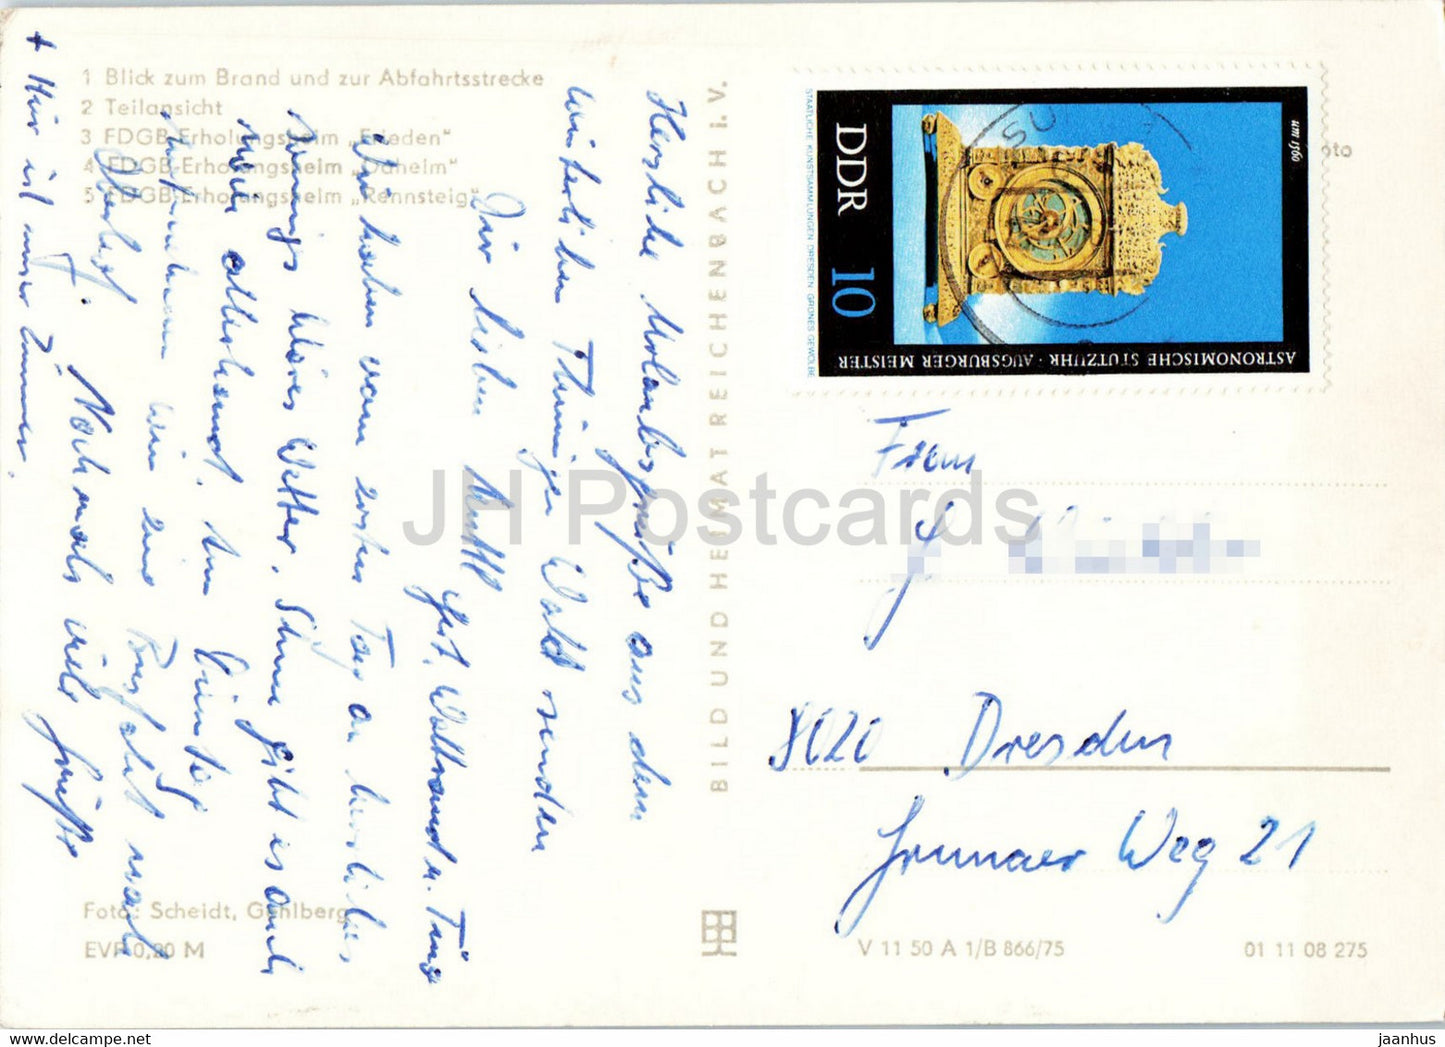 1 Blick zum Brand und zur Abfahrtsstrecke
2 Teilansicht
3 FDGB-Erholungsheim „Frieden"
4 FDGB-Erholungsheim „Daheim"
5 FDGB-Erholungsheim „Rennsteig"
Foto: Scheidt, Gehlberg
EVP 0,20 M
BILD UND HEIMAT REICHENBACH I. V.
Herzliche Urlaubsgrüße aus dem
winterlichen Thüringer Wald senden
Dir liebe Mutti
Gert, Waltraud u.
Wir haben vom ersten Tag an herrliches
Wetter. Schnee gibt es auch
Am Dienstag
wir eine nach
Oberhof. Nochmals viele Grüße
+ Hier ist unser Zimmer.
STAATLICHE KUNSTSAMMLUNGEN DRESDEN GRÜNES GEWÖLBE
DDR 10
um 1560
ASTRONOMISCHE STUTZUHR · AUGSBURGER MEISTER
oto
Frau
8020 Dresden
Grunaer Weg 21
V 11 50 A 1/B 866/75
01 11 08 275
JH Postcards
EVP 0,20 M.jpg
jaanhus